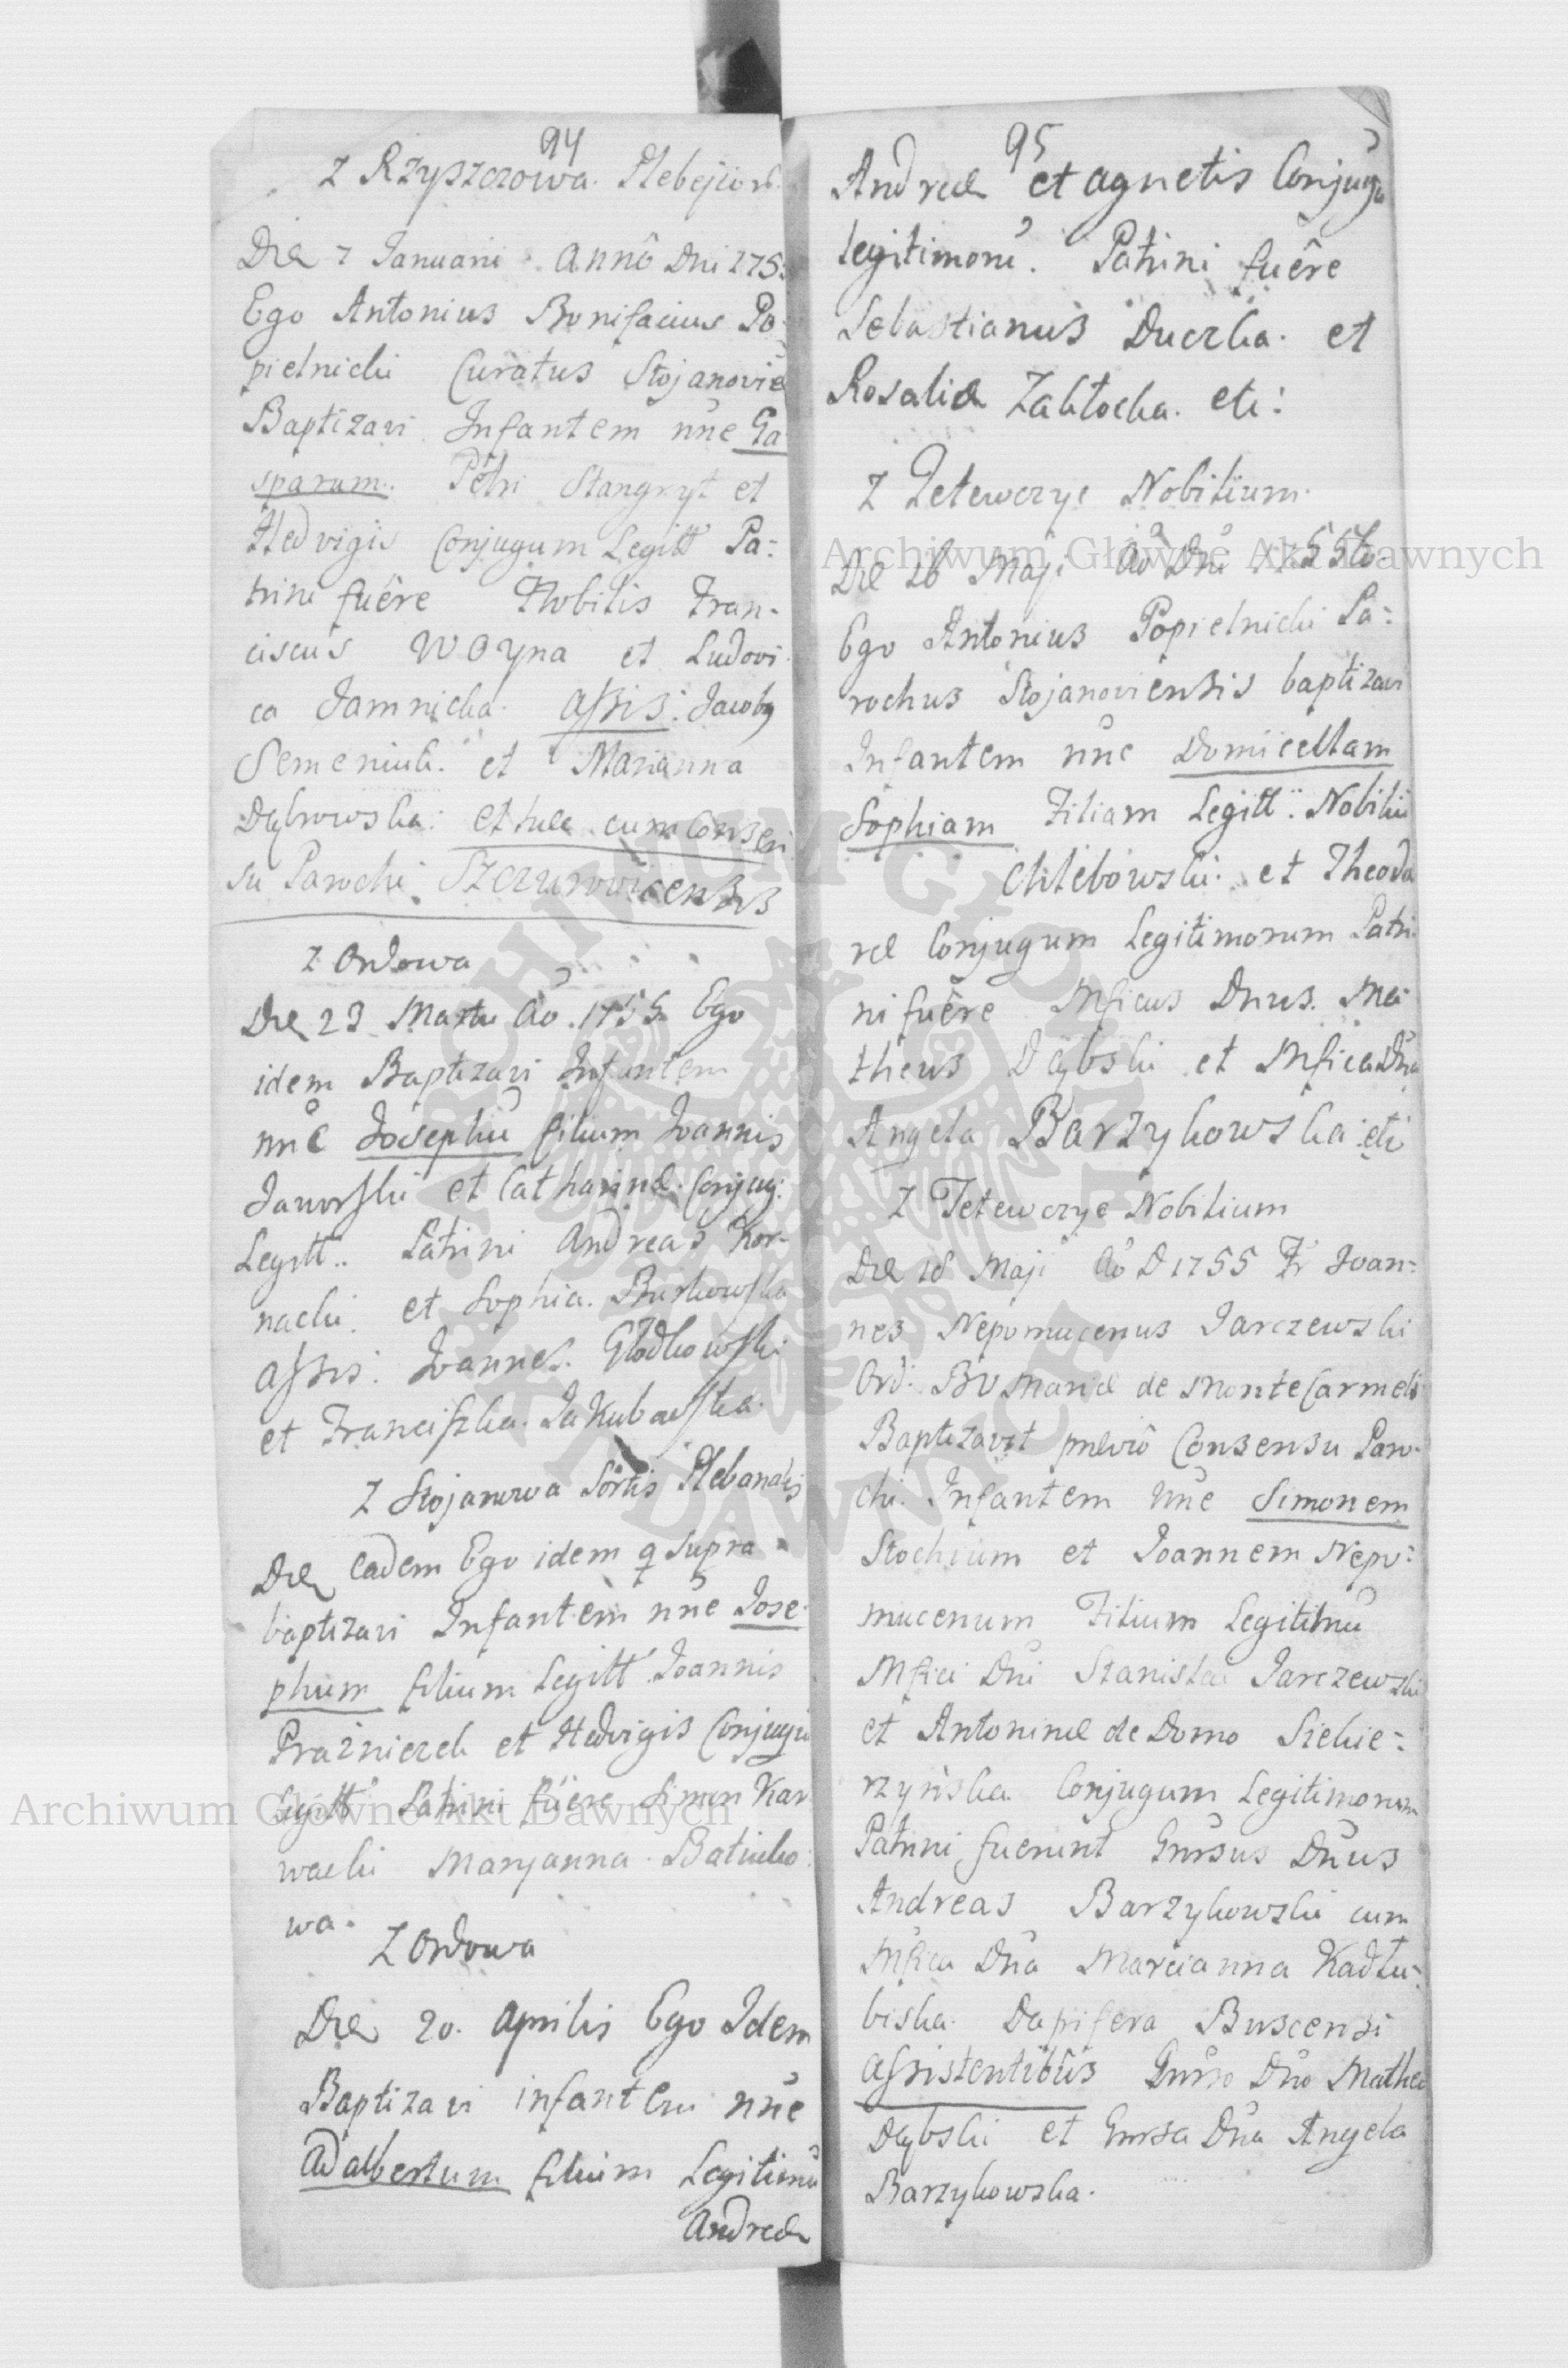 94
Z Rzyszczowa. Plebejior.
Die 7 Januarii Annô Dni 1755
Ego Antonius Bonifacius Po
pielnicki Curatus Stojanovie
Baptizavi Infantem nñe Ga
sparum. Petri Stangryt et
Hedvigis Conjugum Legitt Pa:
trini fuêre Nobilis Fran-
ciscus Woyna et Ludovi
ca Jamnicka. Assis: Jacoby
Semeniuk. et Marianna
Dąbrowska: et hæc cum Consen
su Parochi Szczurowicensis
Z Ordowa
Die 23 Martii Aõ. 1755. Ego
idem Baptizavi Infantem
nñe Josephũ filium Joannis
Jaworski et Catharinæ. Conjug:
Legitt.. Patrini Andreas Kor-
nacki. et Sophia. Burkowska
Assis: Joannes. Głodkowski
et Franciszka. Jakubowska.
Z Stojanowa Sortis Plebanalis
Die eadem Ego idem q supra
baptizavi Infantem nñe Jose
phum filium Legitt Joannis
Praźniczek et Hedvigis Conjugũ
Legitt Patrini fuêre Simon Kar
wacki Maryanna Batiuko
wa.
Z Ordowa
Die 20. Aprilis Ego Idem
Baptizavi infantem nñe
Adalbertum filium Legitimũ
Andreæ
95
Andreæ et Agnetis Conjugũ
legitimorũ. Patrini fuêre
Sebastianus Duczka. et
Rosalia Zabłocka. etc:
Z Tetewczyc Nobilium.
Die 26 Maji Aõ Dni 1755to.
Ego Antonius Popielnicki Pa:
rochus Stojanoviensis baptizavi
Infantem nñe Domicellam
Sophiam Filiam Legitt: Nobiliũ
Chlebowski. et Theodo
ræ Conjugum Legitimorum Patri
ni fuêre Mficus Dnus. Ma
theus Dąbski et Mfica Dña
Angela Barzykowska etc
Z Tetewczyc Nobilium
Die 18 Maji Aõ D 1755 Fr Joan:
nes Nepomucenus Jarczewski
Ord: BV Mariæ de Monte Carmelo
Baptizavit prævio Consensu Paro-
chi. Infantem nñe Simonem
Stochium et Joannem Nepo:
mucenum Filium Legitimũ
Mfici Dni Stanislai Jarczewski
et Antoninæ de Domo Siekie:
rzyńska Conjugum Legitimorum
Patrini fuerunt Gnrsus Dñus
Andreas Barzykowski cum
Mfica Dña Marcianna Kadłu:
biska. Dapifera Buscensi
Assistentibûs Gnrso Dño Matheo
Dąbski et Gnrsa Dña Angela
Barzykowska.
Archiwum Główne Akt Dawnych
Archiwum Główne Akt Dawnych
ARCHIWUM GŁÓWNE AKT DAWNYCH